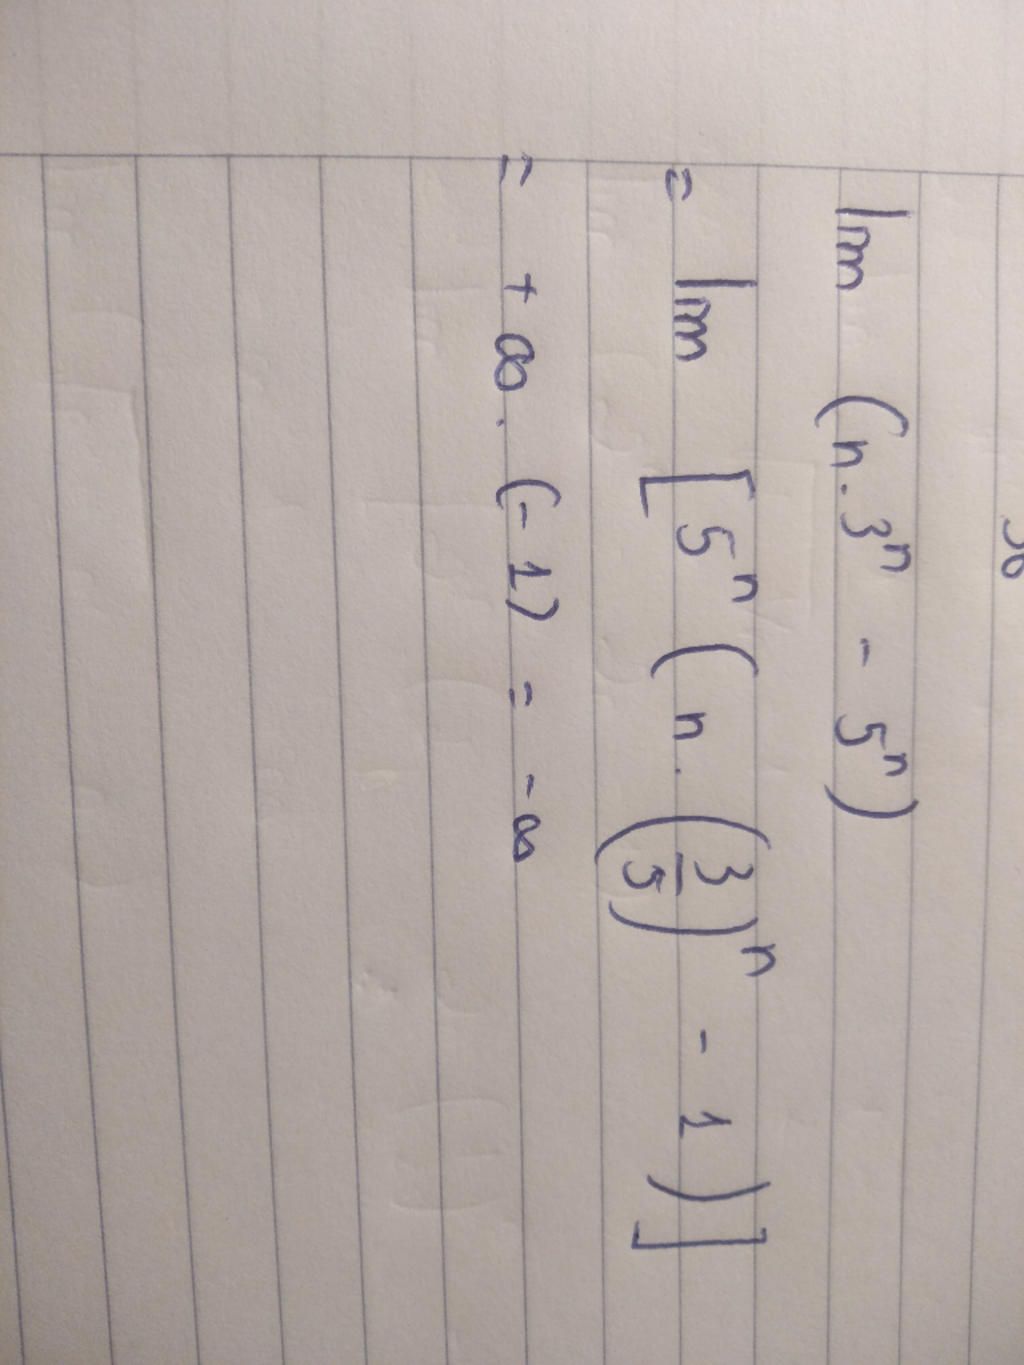 lim (n. 3ⁿ - 5ⁿ)
= lim [5ⁿ (n. (3/5)ⁿ - 1)]
= +∞. (-1) = -∞